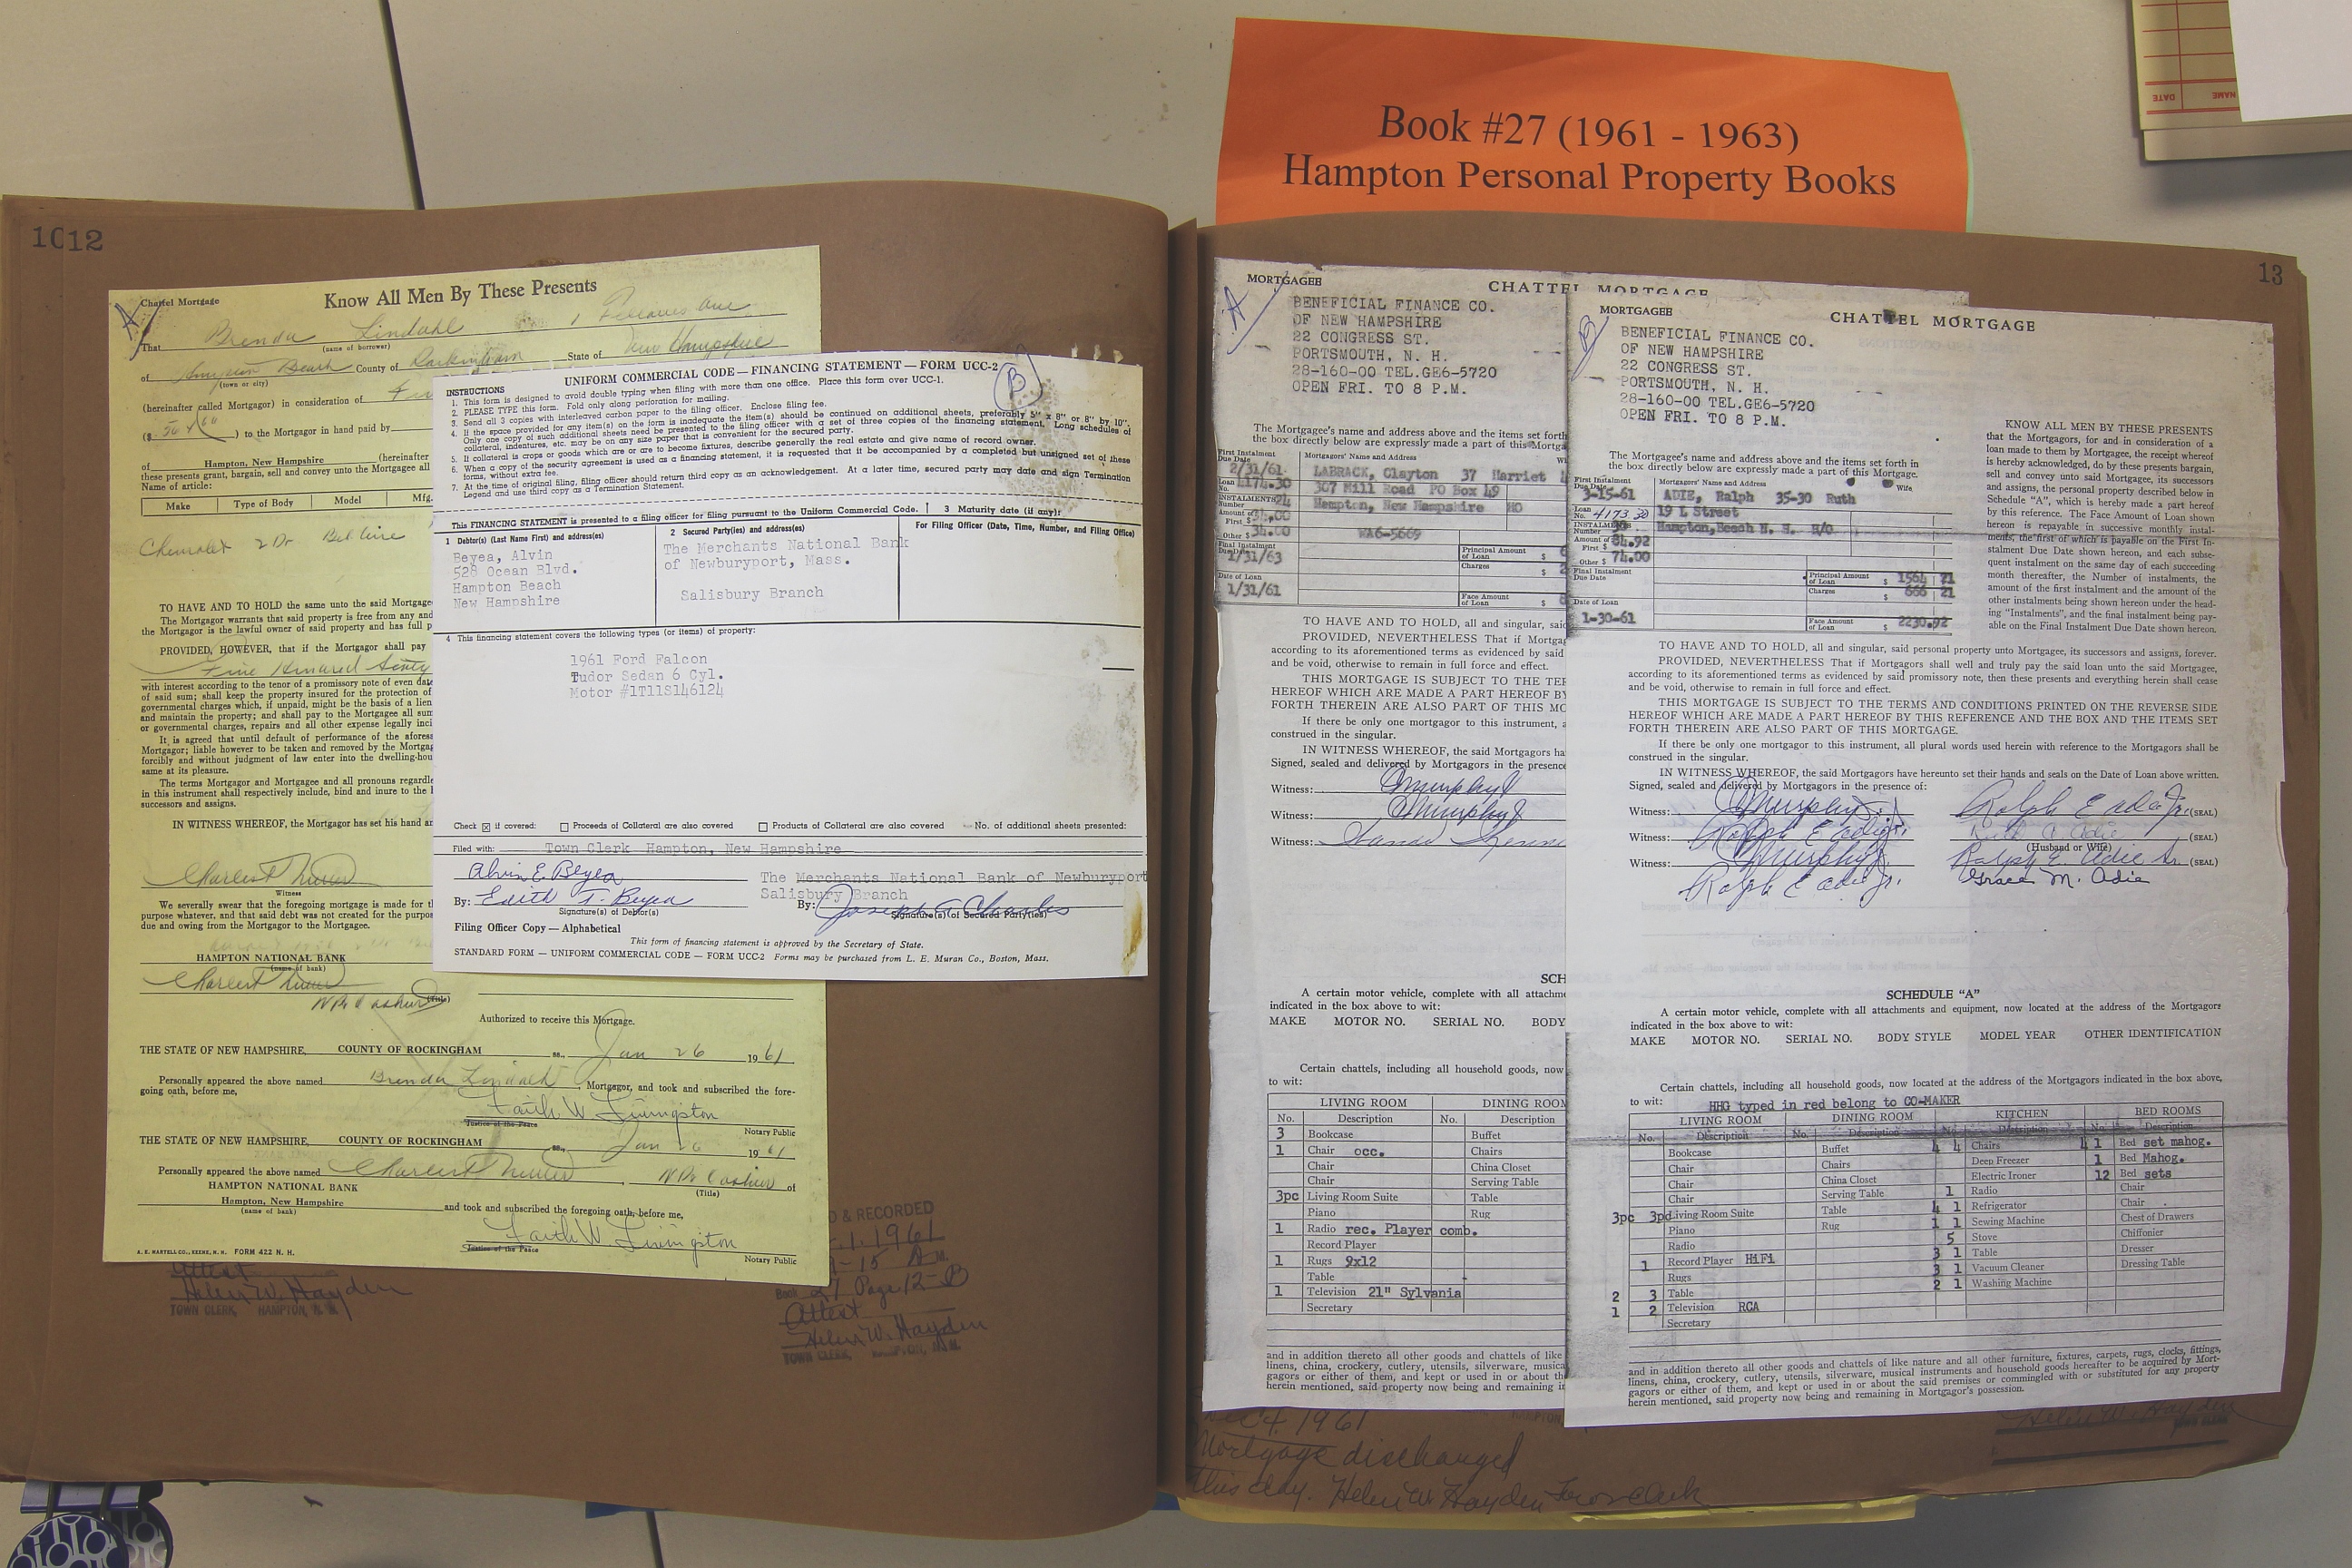 Book #27 (1961 - 1963)
Hampton Personal Property Books
DATE
NAME
1012
A
Chattel Mortgage
Know All Men By These Presents
That Brenda Lindahl
(name of borrower)
of Beach County of Rockingham State of New Hampshire
(town or city)
(hereinafter called Mortgagor) in consideration of
($ ) to the Mortgagor in hand paid by
of Hampton, New Hampshire (hereinafter
these presents grant, bargain, sell and convey unto the Mortgagee all
Name of article:
Make Type of Body Model Mfg.
Chevrolet 2 Dr Bel Aire
TO HAVE AND TO HOLD the same unto the said Mortgagee
The Mortgagor warrants that said property is free from any and
the Mortgagor is the lawful owner of said property and has full p
PROVIDED, HOWEVER, that if the Mortgagor shall pay
Five Hundred Sixty
with interest according to the tenor of a promissory note of even date
of said sum; shall keep the property insured for the protection of
governmental charges which, if unpaid, might be the basis of a lien
and maintain the property; and shall pay to the Mortgagee all sum
or governmental charges, repairs and all other expense legally inci
It is agreed that until default of performance of the afores
Mortgagor; liable however to be taken and removed by the Mortga
forcibly and without judgment of law enter into the dwelling-hou
same at its pleasure.
The terms Mortgagor and Mortgagee and all pronouns regardle
in this instrument shall respectively include, bind and inure to the
successors and assigns.
IN WITNESS WHEREOF, the Mortgagor has set his hand an
Witness
We severally swear that the foregoing mortgage is made for t
purpose whatever, and that said debt was not created for the purpo
due and owing from the Mortgagor to the Mortgagee.
HAMPTON NATIONAL BANK
(name of bank)
(Title)
Authorized to receive this Mortgage.
THE STATE OF NEW HAMPSHIRE, COUNTY OF ROCKINGHAM ss., Jan 26 1961
Personally appeared the above named Brenda Lindahl, Mortgagor, and took and subscribed the fore-
going oath, before me,
Faith W. Livingston
Justice of the Peace
Notary Public
THE STATE OF NEW HAMPSHIRE, COUNTY OF ROCKINGHAM ss., Jan 26 1961
Personally appeared the above named of
(Title)
HAMPTON NATIONAL BANK
Hampton, New Hampshire
(name of bank)
and took and subscribed the foregoing oath, before me,
Faith W. Livingston
Justice of the Peace
Notary Public
A. E. MARTELL CO., KEENE, N. H. FORM 422 N. H.
Attest
Helen W. Hayden
TOWN CLERK, HAMPTON, N. H.
D & RECORDED
1. 1961
-15 A M.
Book 27 Page 12-B
Attest
Helen W. Hayden
TOWN CLERK, HAMPTON, N. H.
UNIFORM COMMERCIAL CODE — FINANCING STATEMENT — FORM UCC-2
B
INSTRUCTIONS
1. This form is designed to avoid double typing when filing with more than one office. Place this form over UCC-1.
2. PLEASE TYPE this form. Fold only along perforation for mailing.
3. Send all 3 copies with interleaved carbon paper to the filing officer. Enclose filing fee.
4. If the space provided for any item(s) on the form is inadequate the item(s) should be continued on additional sheets, preferably 5" x 8" or 8" by 10".
Only one copy of such additional sheets need be presented to the filing officer with a set of three copies of the financing statement. Long schedules of
collateral, indentures, etc. may be on any size paper that is convenient for the secured party.
5. If collateral is crops or goods which are or are to become fixtures, describe generally the real estate and give name of record owner.
6. When a copy of the security agreement is used as a financing statement, it is requested that it be accompanied by a completed but unsigned set of these
forms, without extra fee.
7. At the time of original filing, filing officer should return third copy as an acknowledgement. At a later time, secured party may date and sign Termination
Legend and use third copy as a Termination Statement.
This FINANCING STATEMENT is presented to a filing officer for filing pursuant to the Uniform Commercial Code. 3 Maturity date (if any):
1 Debtor(s) (Last Name First) and address(es)
Beyea, Alvin
528 Ocean Blvd.
Hampton Beach
New Hampshire
2 Secured Party(ies) and address(es)
The Merchants National Bank
of Newburyport, Mass.
Salisbury Branch
For Filing Officer (Date, Time, Number, and Filing Office)
4 This financing statement covers the following types (or items) of property:
1961 Ford Falcon
Tudor Sedan 6 Cyl.
Motor #1T11S146124
Check ☒ if covered: ☐ Proceeds of Collateral are also covered ☐ Products of Collateral are also covered No. of additional sheets presented:
Filed with: Town Clerk Hampton, New Hampshire
Alvin E. Beyea
By: Edith F. Beyea
Signature(s) of Debtor(s)
The Merchants National Bank of Newburyport
Salisbury Branch
By: Joseph G. Charles
Signature(s) of Secured Party(ies)
Filing Officer Copy — Alphabetical
This form of financing statement is approved by the Secretary of State.
STANDARD FORM — UNIFORM COMMERCIAL CODE — FORM UCC-2 Forms may be purchased from L. E. Muran Co., Boston, Mass.
13
A
MORTGAGEE
CHATTEL MORTGAGE
BENEFICIAL FINANCE CO.
OF NEW HAMPSHIRE
22 CONGRESS ST.
PORTSMOUTH, N. H.
28-160-00 TEL.GE6-5720
OPEN FRI. TO 8 P.M.
The Mortgagee's name and address above and the items set forth
the box directly below are expressly made a part of this Mortga
First Instalment Due Date
2/31/61
Mortgagors' Name and Address
LABRACK, Clayton 37 Harriet
307 Mill Road PO Box 49
Hampton, New Hampshire HO
WA6-5669
Loan No. 4174.30
INSTALMENTS
Number 24
Amount of First $ 34.00
Other $ 34.00
Final Instalment Due Date
1/31/63
Date of Loan
1/31/61
Principal Amount of Loan $
Charges $
Face Amount of Loan $
TO HAVE AND TO HOLD, all and singular, said
PROVIDED, NEVERTHELESS That if Mortga
according to its aforementioned terms as evidenced by said
and be void, otherwise to remain in full force and effect.
THIS MORTGAGE IS SUBJECT TO THE TER
HEREOF WHICH ARE MADE A PART HEREOF BY
FORTH THEREIN ARE ALSO PART OF THIS MO
If there be only one mortgagor to this instrument, a
construed in the singular.
IN WITNESS WHEREOF, the said Mortgagors ha
Signed, sealed and delivered by Mortgagors in the presence
Witness: Murphy
Witness: Murphy
Witness:
SCH
A certain motor vehicle, complete with all attachme
indicated in the box above to wit:
MAKE MOTOR NO. SERIAL NO. BODY
Certain chattels, including all household goods, now
to wit:
LIVING ROOM DINING ROOM
No. Description No. Description
3 Bookcase Buffet
1 Chair occ. Chairs
Chair China Closet
Chair Serving Table
3pc Living Room Suite Table
Piano Rug
1 Radio rec. Player comb.
Record Player
1 Rugs 9x12
Table
1 Television 21" Sylvania
Secretary
and in addition thereto all other goods and chattels of like
linens, china, crockery, cutlery, utensils, silverware, musica
gagors or either of them, and kept or used in or about th
herein mentioned, said property now being and remaining in
4, 1961
Mortgage discharged
this day. Helen W. Hayden Town Clerk
B
MORTGAGEE
CHATTEL MORTGAGE
BENEFICIAL FINANCE CO.
OF NEW HAMPSHIRE
22 CONGRESS ST.
PORTSMOUTH, N. H.
28-160-00 TEL.GE6-5720
OPEN FRI. TO 8 P.M.
The Mortgagee's name and address above and the items set forth in
the box directly below are expressly made a part of this Mortgage.
First Instalment Due Date
3-15-61
Mortgagors' Name and Address Wife
ADIE, Ralph 35-30 Ruth
19 L Street
Hampton,Beach N. H. H/O
Loan No. 4173 30
INSTALMENTS
Number 30
Amount of First $ 84.92
Other $ 74.00
Final Instalment Due Date
Date of Loan
1-30-61
Principal Amount of Loan $ 1564 71
Charges $ 666 21
Face Amount of Loan $ 2230.92
KNOW ALL MEN BY THESE PRESENTS
that the Mortgagors, for and in consideration of a
loan made to them by Mortgagee, the receipt whereof
is hereby acknowledged, do by these presents bargain,
sell and convey unto said Mortgagee, its successors
and assigns, the personal property described below in
Schedule "A", which is hereby made a part hereof
by this reference. The Face Amount of Loan shown
hereon is repayable in successive monthly instal-
ments, the first of which is payable on the First In-
stalment Due Date shown hereon, and each subse-
quent instalment on the same day of each succeeding
month thereafter, the Number of instalments, the
amount of the first instalment and the amount of the
other instalments being shown hereon under the head-
ing "Instalments", and the final instalment being pay-
able on the Final Instalment Due Date shown hereon.
TO HAVE AND TO HOLD, all and singular, said personal property unto Mortgagee, its successors and assigns, forever.
PROVIDED, NEVERTHELESS That if Mortgagors shall well and truly pay the said loan unto the said Mortgagee,
according to its aforementioned terms as evidenced by said promissory note, then these presents and everything herein shall cease
and be void, otherwise to remain in full force and effect.
THIS MORTGAGE IS SUBJECT TO THE TERMS AND CONDITIONS PRINTED ON THE REVERSE SIDE
HEREOF WHICH ARE MADE A PART HEREOF BY THIS REFERENCE AND THE BOX AND THE ITEMS SET
FORTH THEREIN ARE ALSO PART OF THIS MORTGAGE.
If there be only one mortgagor to this instrument, all plural words used herein with reference to the Mortgagors shall be
construed in the singular.
IN WITNESS WHEREOF, the said Mortgagors have hereunto set their hands and seals on the Date of Loan above written.
Signed, sealed and delivered by Mortgagors in the presence of:
Witness: Murphy Ralph E Adie Jr. (SEAL)
Witness: Ralph E Adie Jr. Ruth C. Adie (SEAL)
(Husband or Wife)
Witness: Murphy Ralph E. Adie Sr. (SEAL)
Ralph E Adie Jr. Grace M. Adie
SCHEDULE "A"
A certain motor vehicle, complete with all attachments and equipment, now located at the address of the Mortgagors
indicated in the box above to wit:
MAKE MOTOR NO. SERIAL NO. BODY STYLE MODEL YEAR OTHER IDENTIFICATION
Certain chattels, including all household goods, now located at the address of the Mortgagors indicated in the box above,
to wit: HHG typed in red belong to CO-MAKER
LIVING ROOM DINING ROOM KITCHEN BED ROOMS
No. Description No. Description No. Description No. Description
Bookcase Buffet 4 4 Chairs 4 1 Bed set mahog.
Chair Chairs Deep Freezer 1 Bed Mahog.
Chair China Closet Electric Ironer 12 Bed sets
Chair Serving Table 1 Radio Chair
3pc 3pc Living Room Suite Table 4 1 Refrigerator Chair
Piano Rug 1 1 Sewing Machine Chest of Drawers
Radio 5 Stove Chiffonier
1 Record Player HiFi 3 1 Table Dresser
Rugs 3 1 Vacuum Cleaner Dressing Table
2 3 Table 2 1 Washing Machine
1 2 Television RCA
Secretary
and in addition thereto all other goods and chattels of like nature and all other furniture, fixtures, carpets, rugs, clocks, fittings,
linens, china, crockery, cutlery, utensils, silverware, musical instruments and household goods hereafter to be acquired by Mort-
gagors or either of them, and kept or used in or about the said premises or commingled with or substituted for any property
herein mentioned, said property now being and remaining in Mortgagor's possession.
Helen W. Hayden
TOWN CLERK